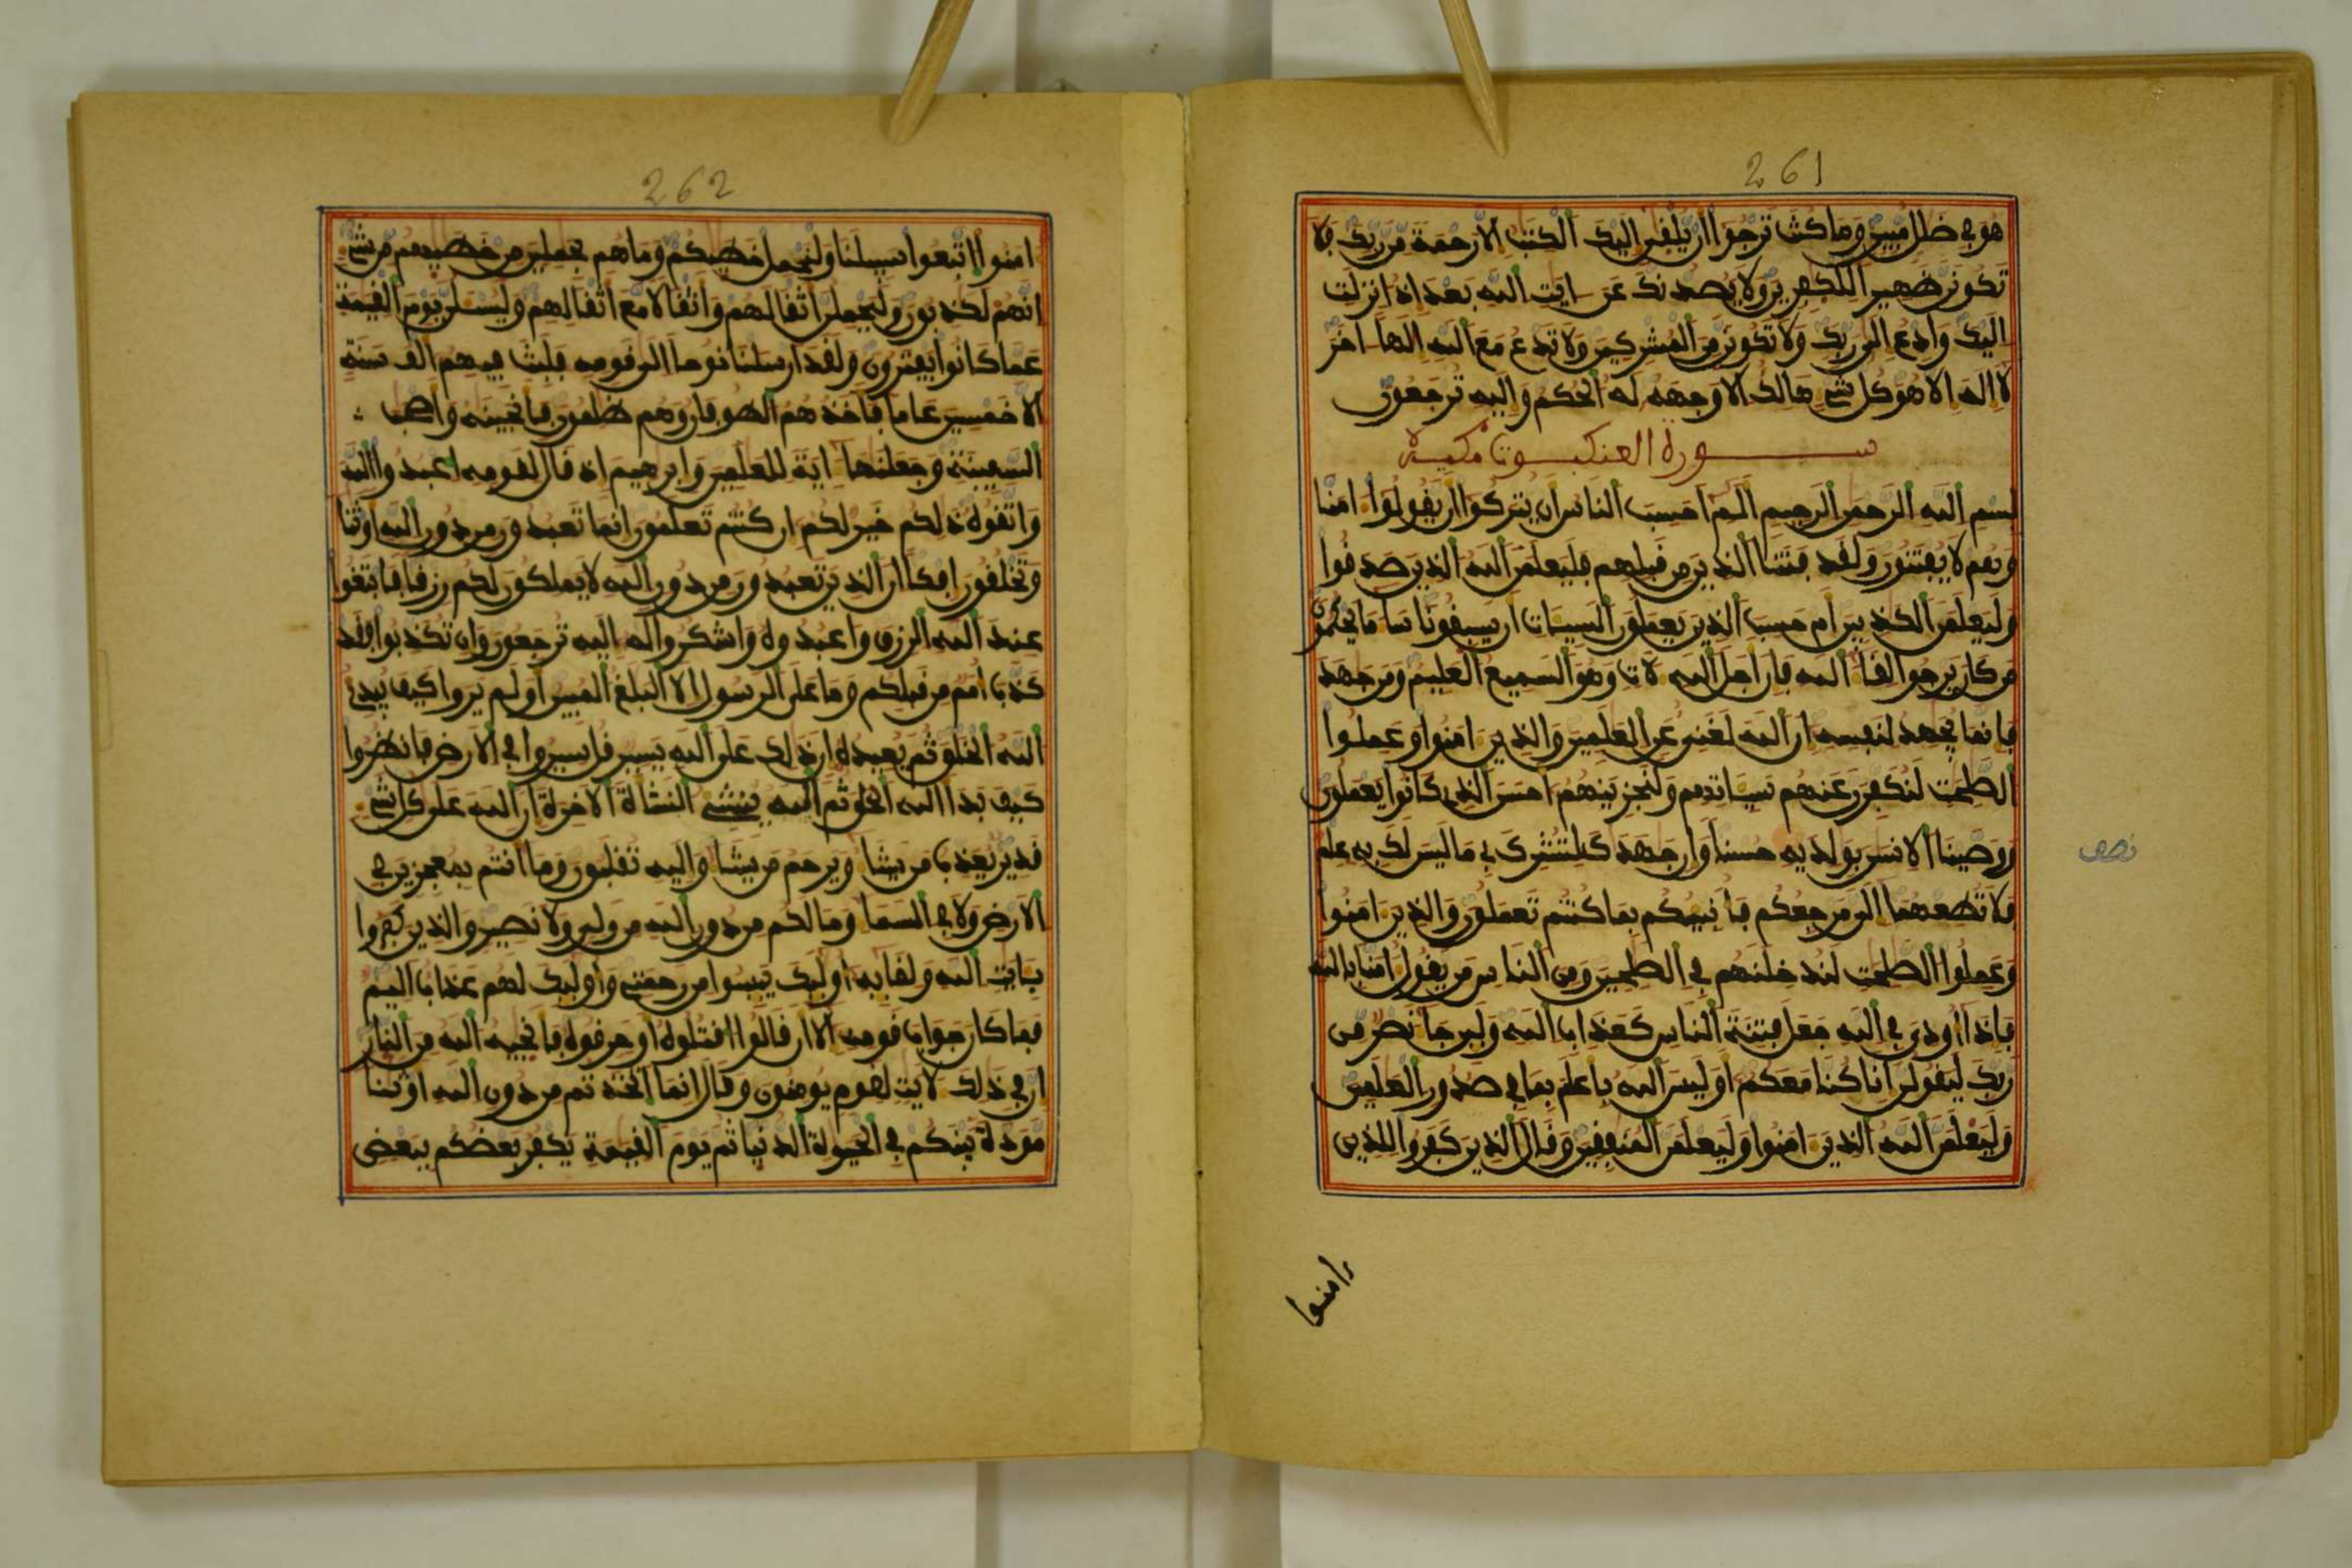 261
هو في ضلل مبين وما كنت ترجوا ان يلقى اليك الكتب الا رحمة من ربك فلا
تكونن ظهيرا للكفرين ولا يصدنك عن ايت الله بعد اذ انزلت
اليك وادع الى ربك ولا تكونن من المشركين ولا تدع مع الله الها اخر
لا اله الا هو كل شيء هالك الا وجهه له الحكم واليه ترجعون
سورة العنكبوت مكية
بسم الله الرحمن الرحيم الم احسب الناس ان يتركوا ان يقولوا امنا
وهم لا يفتنون ولقد فتنا الذين من قبلهم فليعلمن الله الذين صدقوا
وليعلمن الكذبين ام حسب الذين يعملون السيات ان يسبقونا سا ما يحكمون
من كان يرجوا لقا الله فان اجل الله لات وهو السميع العليم ومن جهد
فانما يجهد لنفسه ان الله لغني عن العلمين والذين امنوا وعملوا
الصلحت لنكفرن عنهم سياتهم ولنجزينهم احسن الذي كانوا يعملون
ووصينا الانسن بولديه حسنا وان جهدك لتشرك بي ما ليس لك به علم
نصف
فلا تطعهما الي مرجعكم فانبيكم بما كنتم تعملون والذين امنوا
وعملوا الصلحت لندخلنهم في الصلحين ومن الناس من يقول امنا بالله
فاذا اوذي في الله جعل فتنة الناس كعذاب الله ولين جا نصر من
ربك ليقولن انا كنا معكم او ليس الله باعلم بما في صدور العلمين
وليعلمن الله الذين امنوا وليعلمن المنفقين وقال الذين كفروا للذين
امنوا
262
امنوا اتبعوا سبيلنا ولنحمل خطيكم وما هم بحملين من خطيهم من شيء
انهم لكذبون وليحملن اثقالهم واثقالا مع اثقالهم وليسلن يوم القيمة
عما كانوا يفترون ولقد ارسلنا نوحا الى قومه فلبث فيهم الف سنة
الا خمسين عاما فاخذهم الطوفان وهم ظلمون فانجينه واصحب
السفينة وجعلنها اية للعلمين وابرهيم اذ قال لقومه اعبدوا الله
واتقوه ذلكم خير لكم ان كنتم تعلمون انما تعبدون من دون الله اوثنا
وتخلقون افكا ان الذين تعبدون من دون الله لا يملكون لكم رزقا فابتغوا
عند الله الرزق واعبدوه واشكروا له اليه ترجعون وان تكذبوا فقد
كذب امم من قبلكم وما على الرسول الا البلغ المبين او لم يروا كيف يبدئ
الله الخلق ثم يعيده ان ذلك على الله يسير قل سيروا في الارض فانظروا
كيف بدا الله الخلق ثم الله ينشئ النشاة الاخرة ان الله على كل شيء
قدير يعذب من يشا ويرحم من يشا واليه تقلبون وما انتم بمعجزين في
الارض ولا في السما وما لكم من دون الله من ولي ولا نصير والذين كفروا
بايت الله ولقايه اوليك ييسوا من رحمتي واوليك لهم عذاب اليم
فما كان جواب قومه الا ان قالوا اقتلوه او حرقوه فانجيه الله من النار
ان في ذلك لايت لقوم يومنون وقال انما اتخذتم من دون الله اوثنا
مودة بينكم في الحيوة الدنيا ثم يوم القيمة يكفر بعضكم ببعض